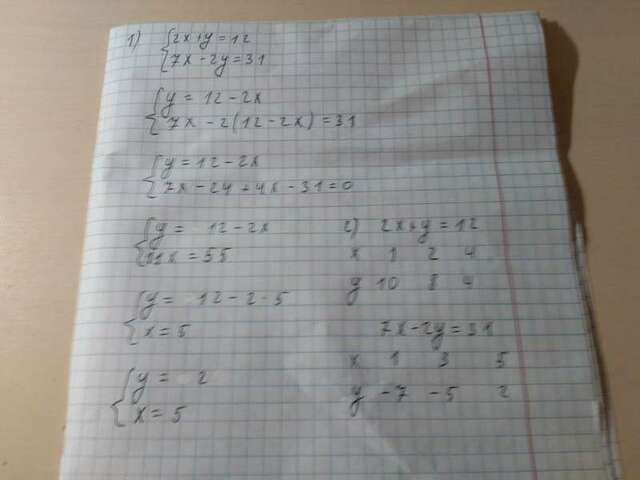 1) {2x+y=12
{7x-2y=31
{y = 12-2x
{7x-2(12-2x)=31
{y=12-2x
{7x-24+4x-31=0
{y = 12-2x
{11x=55
{y = 12-2·5
{x=5
{y = 2
{x=5
2) 2x+y=12
x 1 2 4
y 10 8 4
7x-2y=31
x 1 3 5
y -7 -5 2